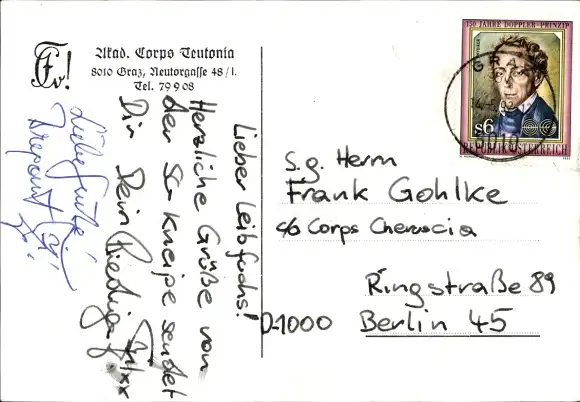 Akad. Corps Teutonia
8010 Graz, Neutorgasse 48/I.
Tel. 79 9 08
Lieber Leibfuchs!
Herzliche Grüße von
der SC Kneipe sendet
Dir Dein
Liebe Grüße,
150 JAHRE DOPPLER-PRINZIP
GRAZ
8010
S6
REPUBLIK ÖSTERREICH
S.g. Herrn
Frank Gohlke
c/o Corps Cheruscia
Ringstraße 89
D-1000 Berlin 45